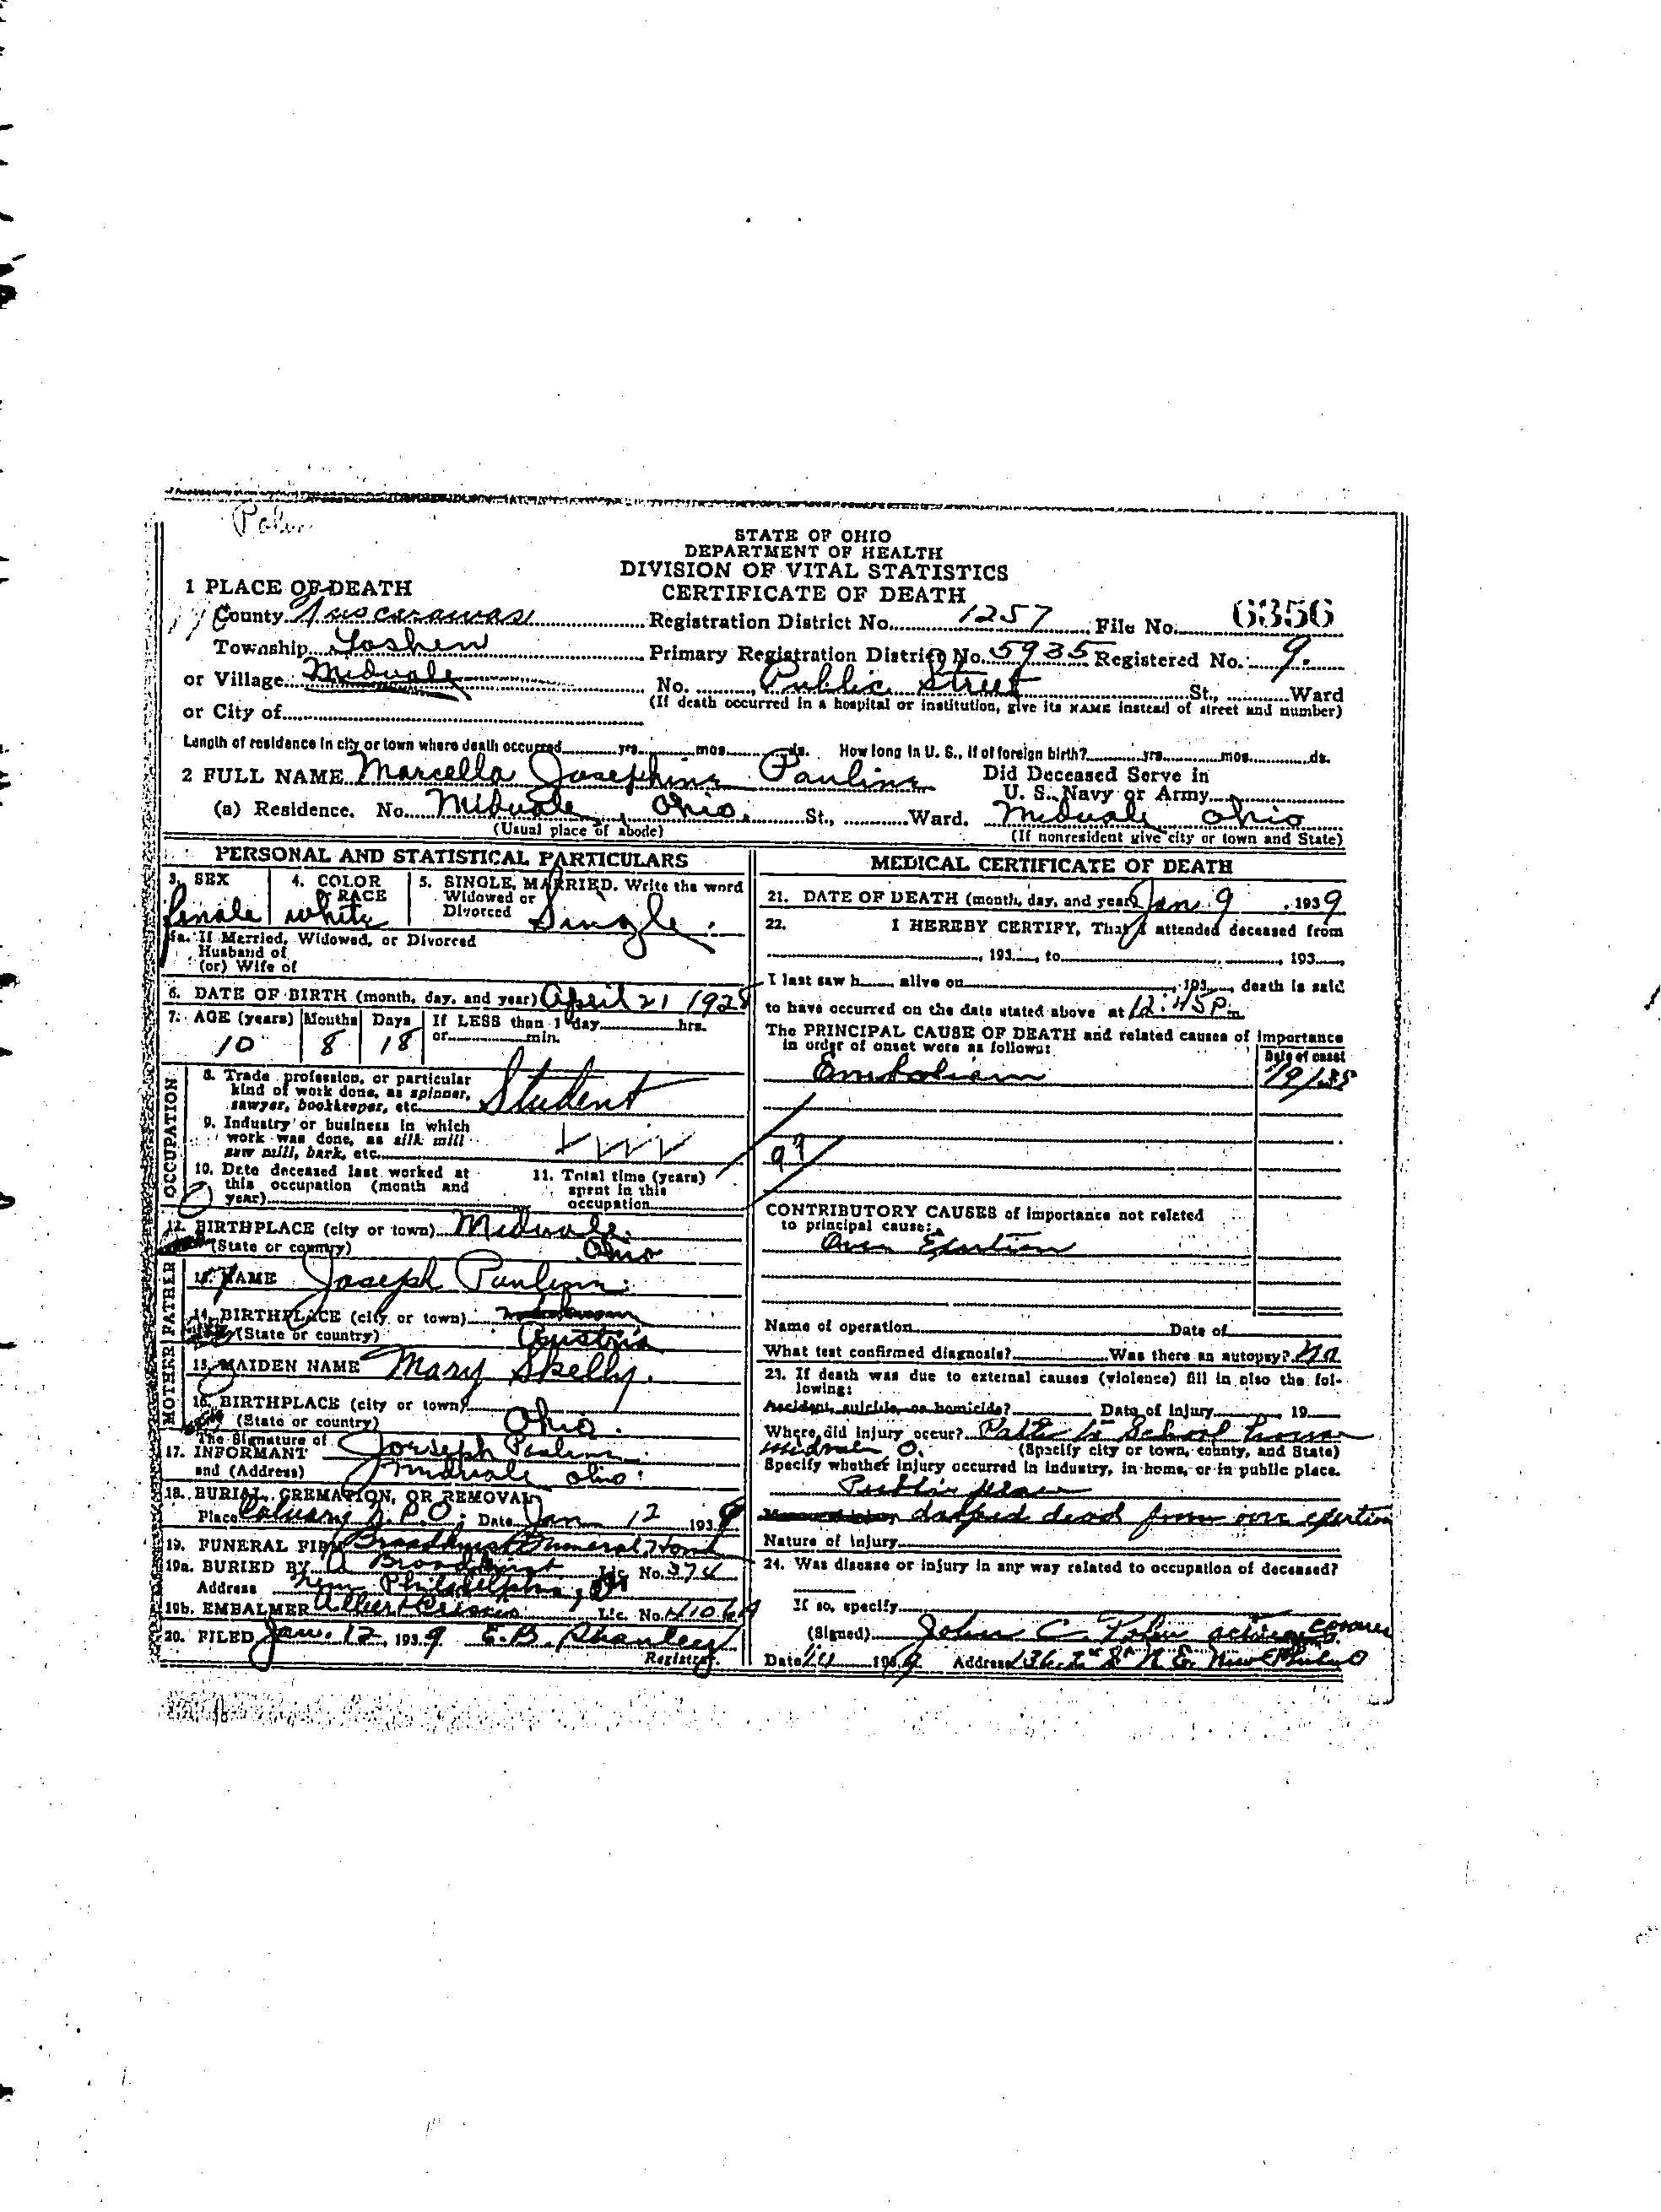 STATE OF OHIO
DEPARTMENT OF HEALTH
DIVISION OF VITAL STATISTICS
CERTIFICATE OF DEATH
1 PLACE OF DEATH
County Tuscarawas Registration District No. 1257 File No. 6356
Township Goshen Primary Registration District No. 5935 Registered No. 9.
or Village Midvale No. Public Street St., Ward
or City of (If death occurred in a hospital or institution, give its NAME instead of street and number)
Length of residence in city or town where death occurred yrs. mos. ds. How long in U. S., if of foreign birth? yrs. mos. ds.
2 FULL NAME Marcella Josephine Pauline Did Deceased Serve in
U. S. Navy or Army
(a) Residence. No. Midvale, Ohio. St., Ward. Midvale Ohio
(Usual place of abode) (If nonresident give city or town and State)
PERSONAL AND STATISTICAL PARTICULARS
3. SEX 4. COLOR RACE 5. SINGLE, MARRIED. Write the word
Widowed or
Divorced
female white Single.
5a. If Married, Widowed, or Divorced
Husband of
(or) Wife of
6. DATE OF BIRTH (month, day, and year) April 21 1928
7. AGE (years) Months Days If LESS than 1 day hrs.
or min.
10 8 18
OCCUPATION
8. Trade profession, or particular
kind of work done, as spinner,
sawyer, bookkeeper, etc. Student
9. Industry or business in which
work was done, as silk mill
saw mill, bank, etc.
10. Date deceased last worked at
this occupation (month and
year)
11. Total time (years)
spent in this
occupation
12. BIRTHPLACE (city or town) Midvale.
(State or country) Ohio
FATHER
13. NAME Joseph Pauline
14. BIRTHPLACE (city or town)
(State or country) Austria
MOTHER
15. MAIDEN NAME Mary Skelly.
16. BIRTHPLACE (city or town)
(State or country) Ohio.
The Signature of
17. INFORMANT Joseph Pauline
and (Address) Midvale Ohio
18. BURIAL, CREMATION, OR REMOVAL
Place Calvary N.P.O. Date Jan 12 1939
19. FUNERAL FIRM Broadhurst Funeral Home
19a. BURIED BY A Broadhurst Lic. No. 374
Address New Philadelphia, O
19b. EMBALMER Albert Lic. No.
20. FILED Jan. 12, 1939 E.B. Shanley
Registrar.
MEDICAL CERTIFICATE OF DEATH
21. DATE OF DEATH (month, day, and year) Jan 9, 1939
22. I HEREBY CERTIFY, That I attended deceased from
, 193 , to , 193
I last saw h alive on , 193 , death is said
to have occurred on the date stated above at 12:45 P. m.
The PRINCIPAL CAUSE OF DEATH and related causes of importance
in order of onset were as follows:
Date of onset
Embolism
97
CONTRIBUTORY CAUSES of importance not related
to principal cause:
Over Exertion
Name of operation Date of
What test confirmed diagnosis? Was there an autopsy? No
23. If death was due to external causes (violence) fill in also the following:
Accident, suicide, or homicide? Date of injury , 19
Where did injury occur? Path to School house
Midvale O. (Specify city or town, county, and State)
Specify whether injury occurred in industry, in home, or in public place.
Public place
dropped dead from over exertion
Nature of injury
24. Was disease or injury in any way related to occupation of deceased?
If so, specify
(Signed) John C. acting coroner
Date 1939 Address N.E. New Phila O